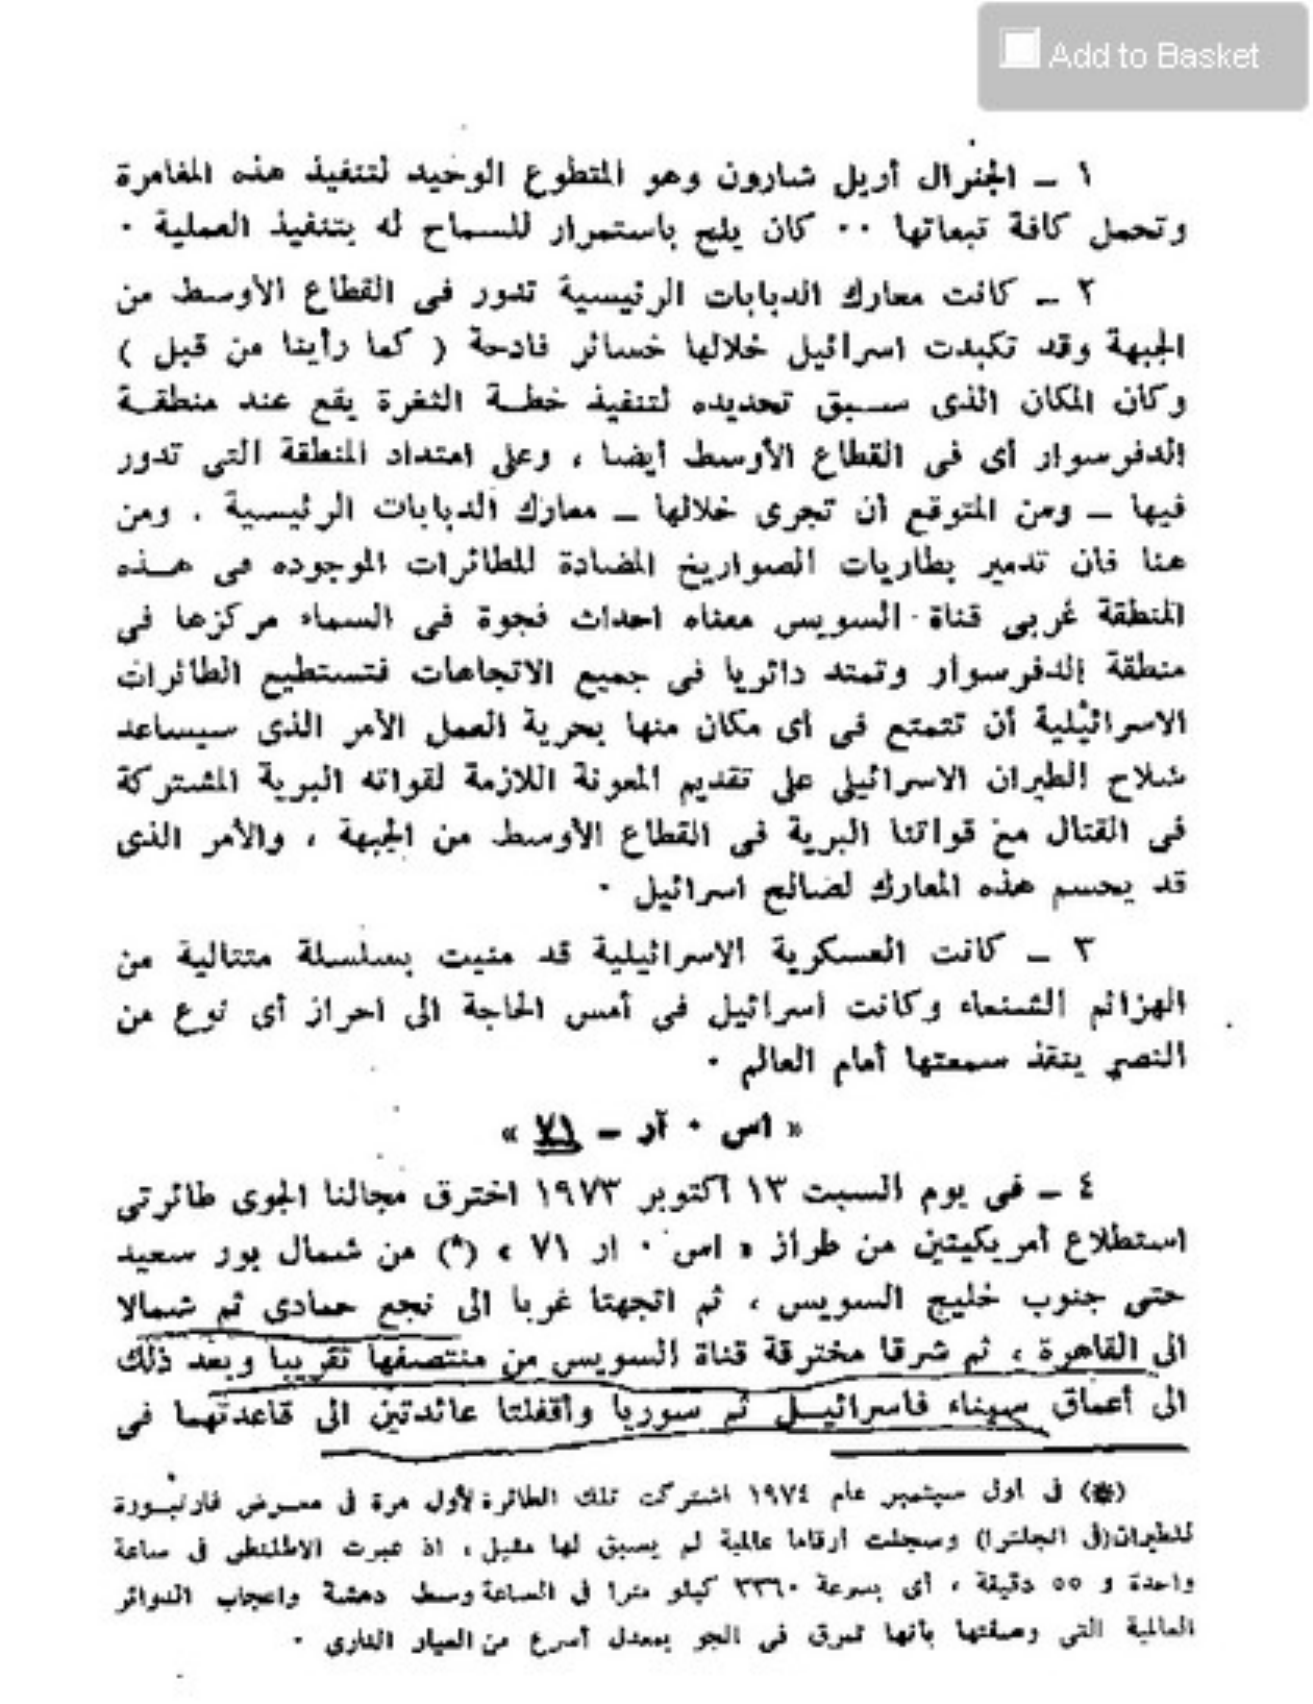 Add to Basket
١ ــ الجنرال أريل شارون وهو المتطوع الوحيد لتنفيذ هذه المغامرة
وتحمل كافة تبعاتها ٠٠ كان يلح باستمرار للسماح له بتنفيذ العملية ٠
٢ ــ كانت معارك الدبابات الرئيسية تدور فى القطاع الأوسط من
الجبهة وقد تكبدت اسرائيل خلالها خسائر فادحة ( كما رأينا من قبل )
وكان المكان الذى سـبق تحديده لتنفيذ خطـة الثغرة يقع عند منطقـة
الدفرسوار أى فى القطاع الأوسط أيضا ، وعلى امتداد المنطقة التى تدور
فيها ــ ومن المتوقع أن تجرى خلالها ــ معارك الدبابات الرئيسية . ومن
هنا فان تدمير بطاريات الصواريخ المضادة للطائرات الموجوده فى هـذه
المنطقة غربى قناة السويس معناه احداث فجوة فى السماء مركزها فى
منطقة الدفرسوار وتمتد دائريا فى جميع الاتجاهات فتستطيع الطائرات
الاسرائيلية أن تتمتع فى أى مكان منها بحرية العمل الأمر الذى سيساعد
سلاح الطيران الاسرائيلى على تقديم المعونة اللازمة لقواته البرية المشتركة
فى القتال مع قواتنا البرية فى القطاع الأوسط من الجبهة ، والأمر الذى
قد يحسم هذه المعارك لصالح اسرائيل ٠
٣ ــ كانت العسكرية الاسرائيلية قد منيت بسلسلة متتالية من
الهزائم الشنعاء وكانت اسرائيل فى أمس الحاجة الى احراز أى نوع من
النصر ينقذ سمعتها أمام العالم ٠
« اس ٠ آر ــ ٧١ »
٤ ــ فى يوم السبت ١٣ أكتوبر ١٩٧٣ اخترق مجالنا الجوى طائرتى
استطلاع أمريكيتين من طراز « اس ٠ ار ٧١ » (*) من شمال بور سعيد
حتى جنوب خليج السويس ، ثم اتجهتا غربا الى نجع حمادى ثم شمالا
الى القاهرة ، ثم شرقا مخترقة قناة السويس من منتصفها تقريبا وبعد ذلك
الى أعماق سيناء فاسرائيـل ثم سوريا وأقفلتا عائدتين الى قاعدتهما فى
(*) فى أول سبتمبر عام ١٩٧٤ اشتركت تلك الطائرة لأول مرة فى معـرض فارنبـورة
للطيران (فى انجلترا) وسجلت أرقاما عالمية لم يسبق لها مثيل ، اذ عبرت الاطلنطى فى ساعة
واحدة و ٥٥ دقيقة ، أى بسرعة ٣٣٦٠ كيلو مترا فى الساعة وسط دهشة واعجاب الدوائر
العالمية التى وصفتها بأنها تمرق فى الجو بمعدل أسرع من العيار النارى ٠